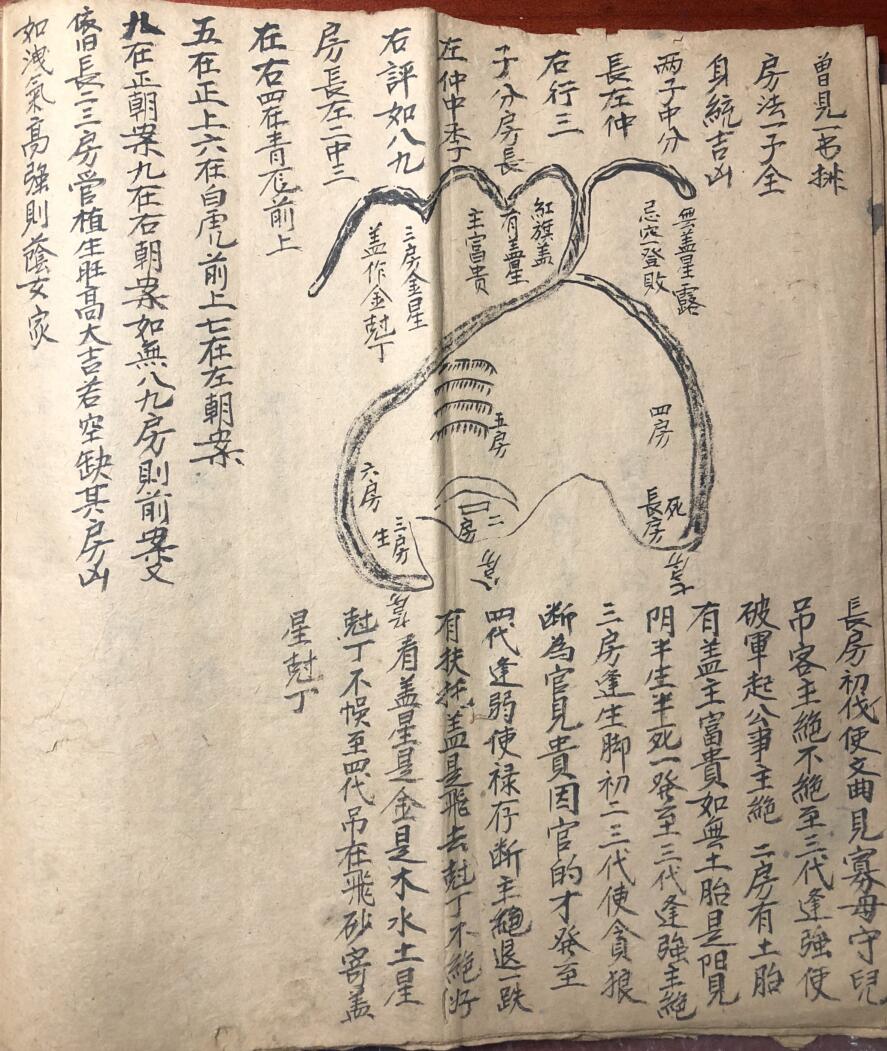 曽見一書排
房法一子全
身統吉凶
两子中分
長左仲
右行三
子分房長
左仲中季丁
右評如八九
房長左二中三
在右四在青龙前上
五在正上六在白虎前上七在左朝案
九在正朝案九在右朝案如無八九房則前案又
依旧長二三房管植生旺高大吉若空缺其房凶
如洩氣高強則蔭女家
無盖星露
忌空一登敗
紅旗盖
有盖星
主富貴
三房金星
盖作金尅丁
四房
死
長房
五房
二
房
六房
三房
生
長房初伐使文曲見寡母守兒
吊客主絶不絶至三代逢強使
破軍起公事主絶 二房有土胎
有盖主富貴如無土胎是阳見
阴半生半死一發至三代逢強主絶
三房逢生脚初二三代使貪狼
断為官見貴因官的才發至
四代逢弱使禄存断主絶退一跌
有扶托盖是飛去尅丁不絶
看盖星是金是木水土星
尅丁不悮至四代吊在飛砂寄盖
星尅丁